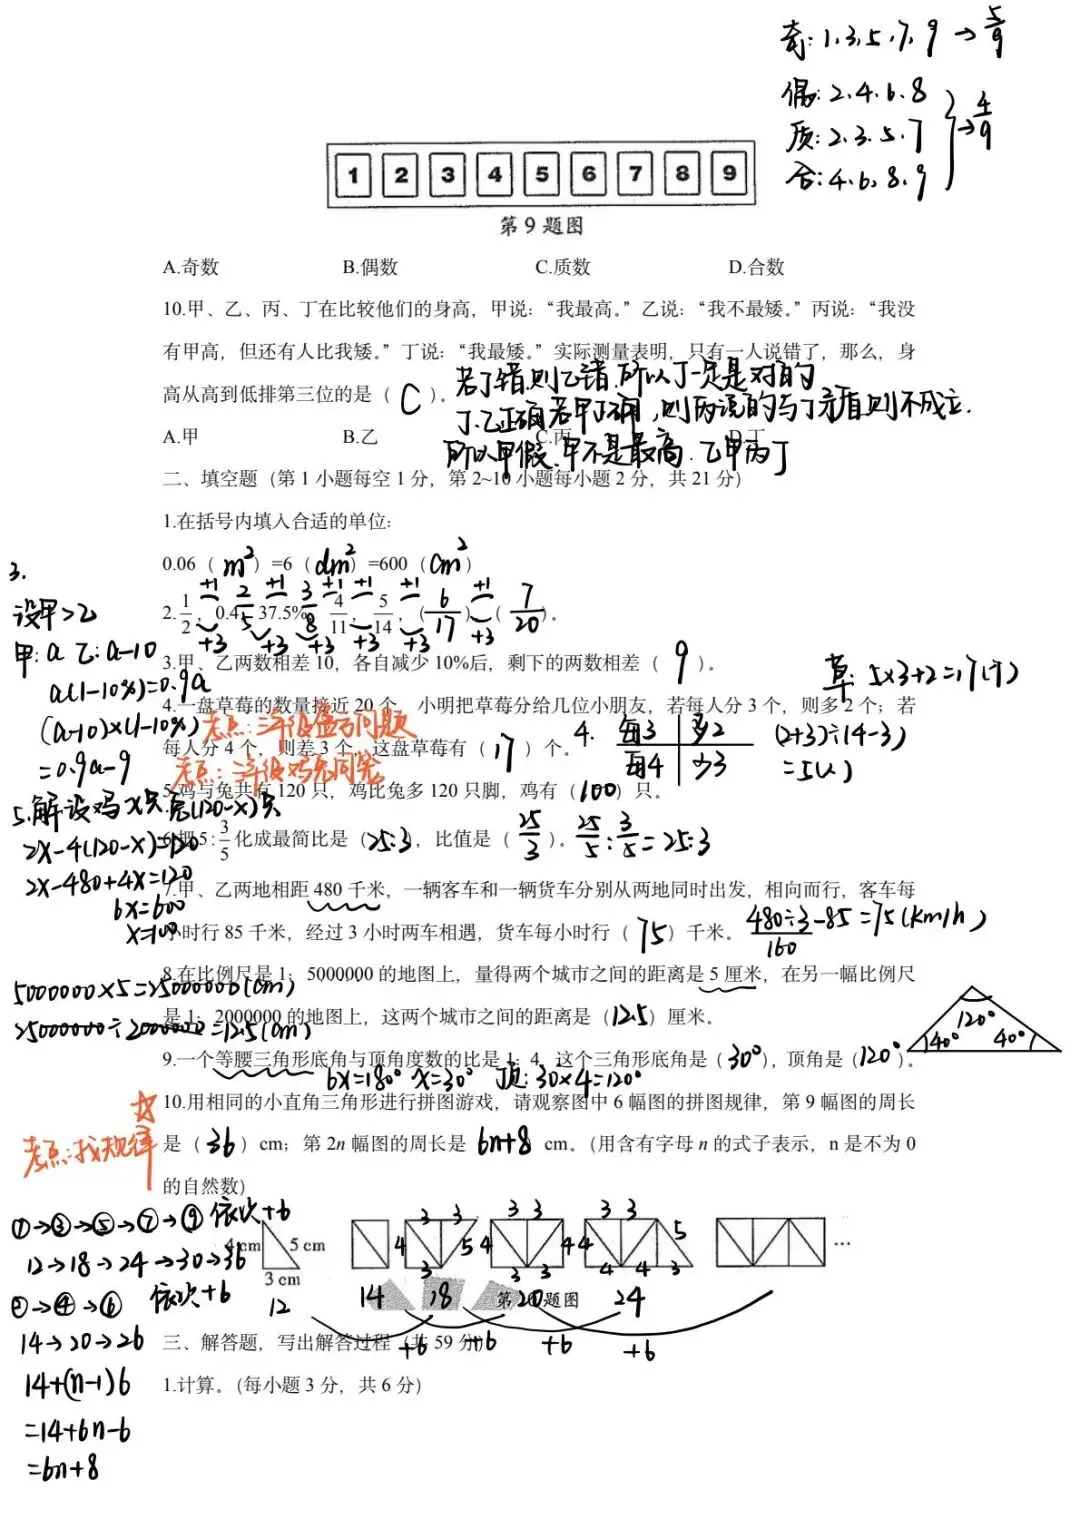 奇:1,3,5,7,9→5/9
偶:2.4.6.8
质:2.3.5.7
合:4.6.8.9
→4/9
1 2 3 4 5 6 7 8 9
第9题图
A.奇数 B.偶数 C.质数 D.合数
10.甲、乙、丙、丁在比较他们的身高，甲说：“我最高。”乙说：“我不最矮。”丙说：“我没
有甲高，但还有人比我矮。”丁说：“我最矮。”实际测量表明，只有一人说错了，那么，身
高从高到低排第三位的是（C）。
若丁错,则乙错.所以丁一定是对的
丁.乙正确若甲正确,则丙说的与丁矛盾则不成立.
所以甲假.甲不是最高.乙甲丙丁
A.甲 B.乙 C.丙 D.丁
二、填空题（第1小题每空1分，第2~10小题每小题2分，共21分）
1.在括号内填入合适的单位：
0.06（m²）=6（dm²）=600（cm²）
+1 +1 +1 +1 +1 +1
2. 1/2，0.4，2/5 37.5%，3/8 4/11，5/14，（6/17），（7/20）。
+3 +3 +3 +3 +3 +3
3.甲、乙两数相差10，各自减少10%后，剩下的两数相差（9）。
3.
设甲>乙
甲:a 乙:a-10
a(1-10%)=0.9a
(a-10)×(1-10%)
=0.9a-9
草:5×3+2=17(个)
4.一盘草莓的数量接近20个，小明把草莓分给几位小朋友，若每人分3个，则多2个；若
每人分4个，则差3个，这盘草莓有（17）个。
考点:三年级盈亏问题
4. 每3 多2
每4 少3
(2+3)÷(4-3)
=5(人)
5.鸡与兔共有120只，鸡比兔多120只脚，鸡有（100）只。
5.解设鸡x只兔(120-x)只
2x-4(120-x)=120
2x-480+4x=120
6x=600
x=100
6.把5:3/5化成最简比是（25:3），比值是（25/3）。25/5:3/5=25:3
7.甲、乙两地相距480千米，一辆客车和一辆货车分别从两地同时出发，相向而行，客车每
小时行85千米，经过3小时两车相遇，货车每小时行（75）千米。
480÷3-85=75(km/h)
160
8.在比例尺是1：5000000的地图上，量得两个城市之间的距离是5厘米，在另一幅比例尺
是1：2000000的地图上，这两个城市之间的距离是（12.5）厘米。
5000000×5=25000000(cm)
25000000÷2000000=12.5(cm)
120°
40° 40°
9.一个等腰三角形底角与顶角度数的比是1：4，这个三角形底角是（30°），顶角是（120°）。
6x=180° x=30° 顶:30×4=120°
10.用相同的小直角三角形进行拼图游戏，请观察图中6幅图的拼图规律，第9幅图的周长
是（36）cm；第2n幅图的周长是 6n+8 cm。（用含有字母n的式子表示，n是不为0
的自然数）
考点:找规律
①→③→⑤→⑦→⑨ 依次+6
12→18→24→30→36
②→④→⑥ 依次+6
14→20→26
14+(n-1)6
=14+6n-6
=6n+8
4 cm 5 cm
3 cm
3 3 4 5 3
3 3 4 4 3 3
3 3 4 5 4 4 3
…
12 14 18 20 24
第10题图
+6 +6 +6 +6
三、解答题，写出解答过程（共59分）
1.计算。（每小题3分，共6分）